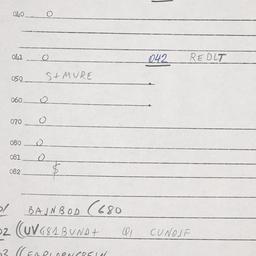 040 0
041 0 042 REDLT
050 S+MURE
060 0
070 0
080 0
081 0
082 $
01 BAJNBOD (680
02 ((UVG81BUND+ Q1 CUNDJF